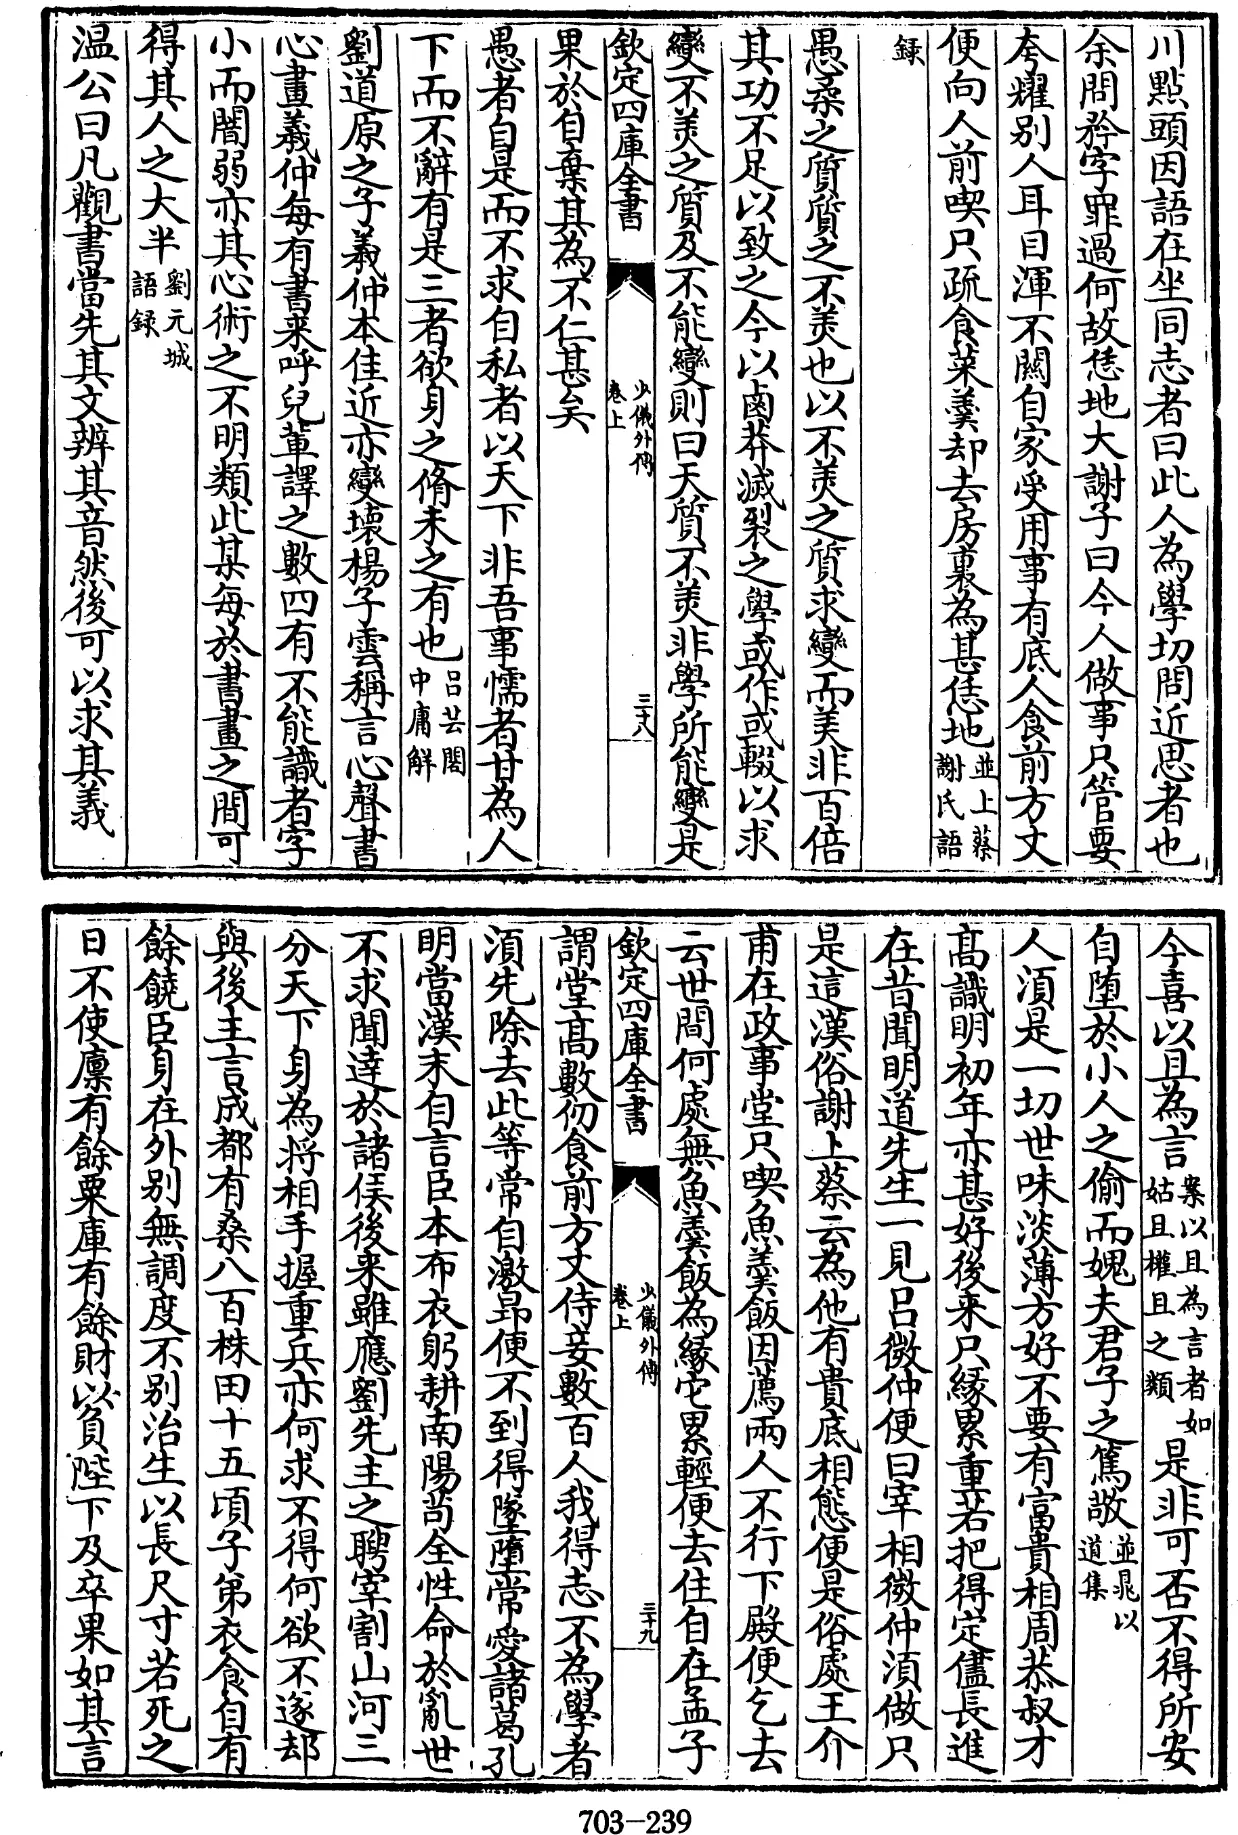 川點頭因語在坐同志者曰此人為學切問近思者也
余問矜字罪過何故恁地大謝子曰今人做事只管要
夸耀别人耳目渾不闗自家受用事有底人食前方丈
便向人前喫只疏食菜羮却去房裏為甚恁地並上蔡謝氏語
録
愚柔之質質之不美也以不美之質求變而美非百倍
其功不足以致之今以鹵莽滅裂之學或作或輟以求
變不美之質及不能變則曰天質不美非學所能變是
欽定四庫全書 少儀外傳卷上 三十八
果於自棄其為不仁甚矣
愚者自是而不求自私者以天下非吾事懦者甘為人
下而不辭有是三者欲身之脩未之有也吕芸閣中庸解
劉道原之子羲仲本佳近亦變壞楊子雲稱言心聲書
心畫羲仲每有書来呼兒軰譯之數四有不能識者字
小而闇弱亦其心術之不明類此某每於書畫之間可
得其人之大半劉元城語録
温公曰凡觀書當先其文辨其音然後可以求其義
今喜以且為言案以且為言者如姑且權且之類是非可否不得所安
自堕於小人之偷而媿夫君子之篤敬並晁以道集
人湏是一切世味淡薄方好不要有富貴相周恭叔才
髙識明初年亦甚好後来只縁累重若把得定儘長進
在昔聞明道先生一見吕微仲便曰宰相微仲湏做只
是這漢俗謝上蔡云為他有貴底相態便是俗處王介
甫在政事堂只喫魚羮飯因薦兩人不行下殿便乞去
云世間何處無魚羮飯為縁它累輕便去住自在孟子
欽定四庫全書 少儀外傳卷上 三十九
謂堂髙數仞食前方丈侍妾數百人我得志不為學者
湏先除去此等常自激昻便不到得墜墮常愛諸葛孔
明當漢末自言臣本布衣躬耕南陽茍全性命於亂世
不求聞逹於諸侯後来雖應劉先主之聘宰割山河三
分天下身為将相手握重兵亦何求不得何欲不遂却
與後主言成都有桑八百株田十五頃子第衣食自有
餘饒臣身在外别無調度不别治生以長尺寸若死之
日不使廪有餘粟庫有餘財以負陛下及卒果如其言
703-239